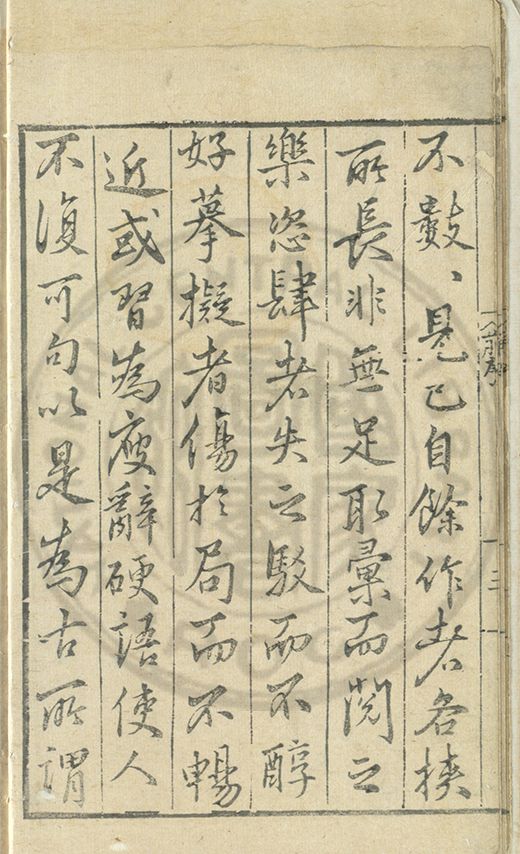 不數、見已自餘作者各挾
所長非無足取彙而閱之
樂恣肆者失之駁而不醇
好摹擬者傷於局而不暢
近或習為廋辭硬語使人
不復可句以是為古所謂
序
三